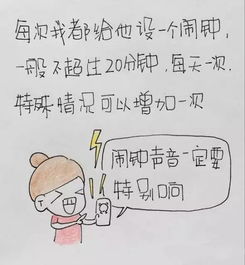 每次我都给他设一个闹钟，
一般不超过20分钟，每天一次.
特殊情况可以增加一次
闹钟声音一定要
特别响